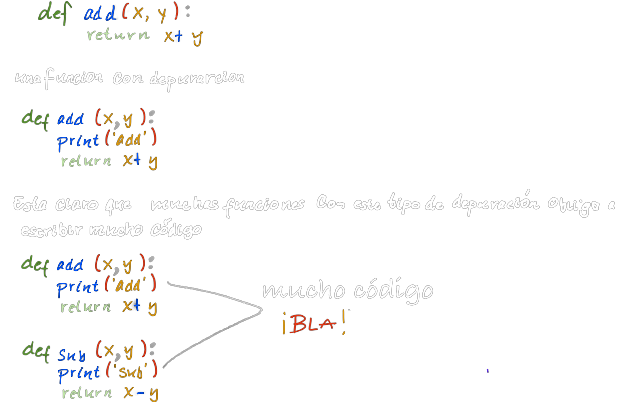 def add(x, y):
return x+ y
una función con depuración
def add (x,y):
print('add')
return x+ y
Esta claro que muchas funciones con este tipo de depuración obliga a
escribir mucho código
def add (x,y):
print('add')
return x+ y
mucho código
¡BLA!
def sub (x,y):
print('sub')
return x-y